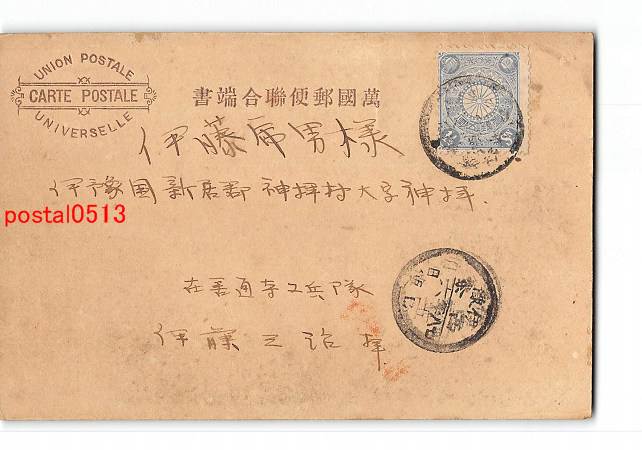 UNION POSTALE
CARTE POSTALE
UNIVERSELLE
書端合聯便郵國萬
伊藤席男様
伊予國新居郡神拝村大字神拝
postal0513
在善通寺工兵隊
伊藤三治拝